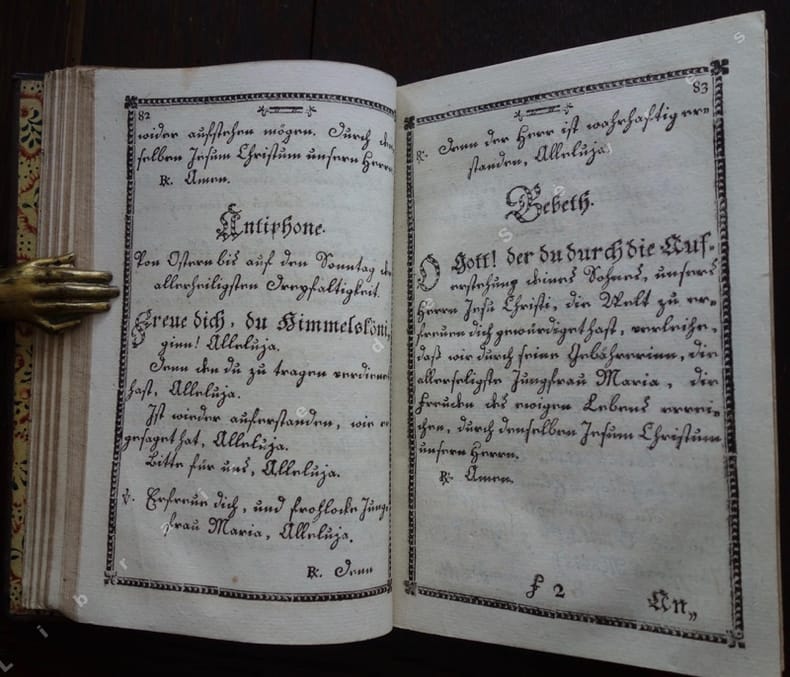 82
wider aufstehen mögen. Durch den
selben Jesum Christum unsern Herrn
R. Amen.
Antiphone.
Von Ostern bis auf den Sonntag de
allerheiligsten Dreyfaltigkeit.
Freue dich, du Himmelsköni,
ginn! Alleluja.
Denn den du zu tragen verdienet
hast, Alleluja.
Ist wieder auferstanden, wie er
gesaget hat, Alleluja.
Bitte für uns, Alleluja.
V. Erfreue dich, und frohlocke Jung,
frau Maria, Alleluja.
R. Denn
83
R. Denn der Herr ist wahrhaftig er=
standen, Alleluja.
Gebeth.
O Gott! der du durch die Auf=
erstehung deines Sohnes, unsers
Herrn Jesu Christi, die Welt zu er=
freuen dich gewürdiget hast, verleihe,
daß wir durch seine Gebährerinn, die
allerseligste Jungfrau Maria, die
Freuden des ewigen Lebens errei=
chen, durch denselben Jesum Christum
unsern Herrn.
R. Amen.
F 2
An„